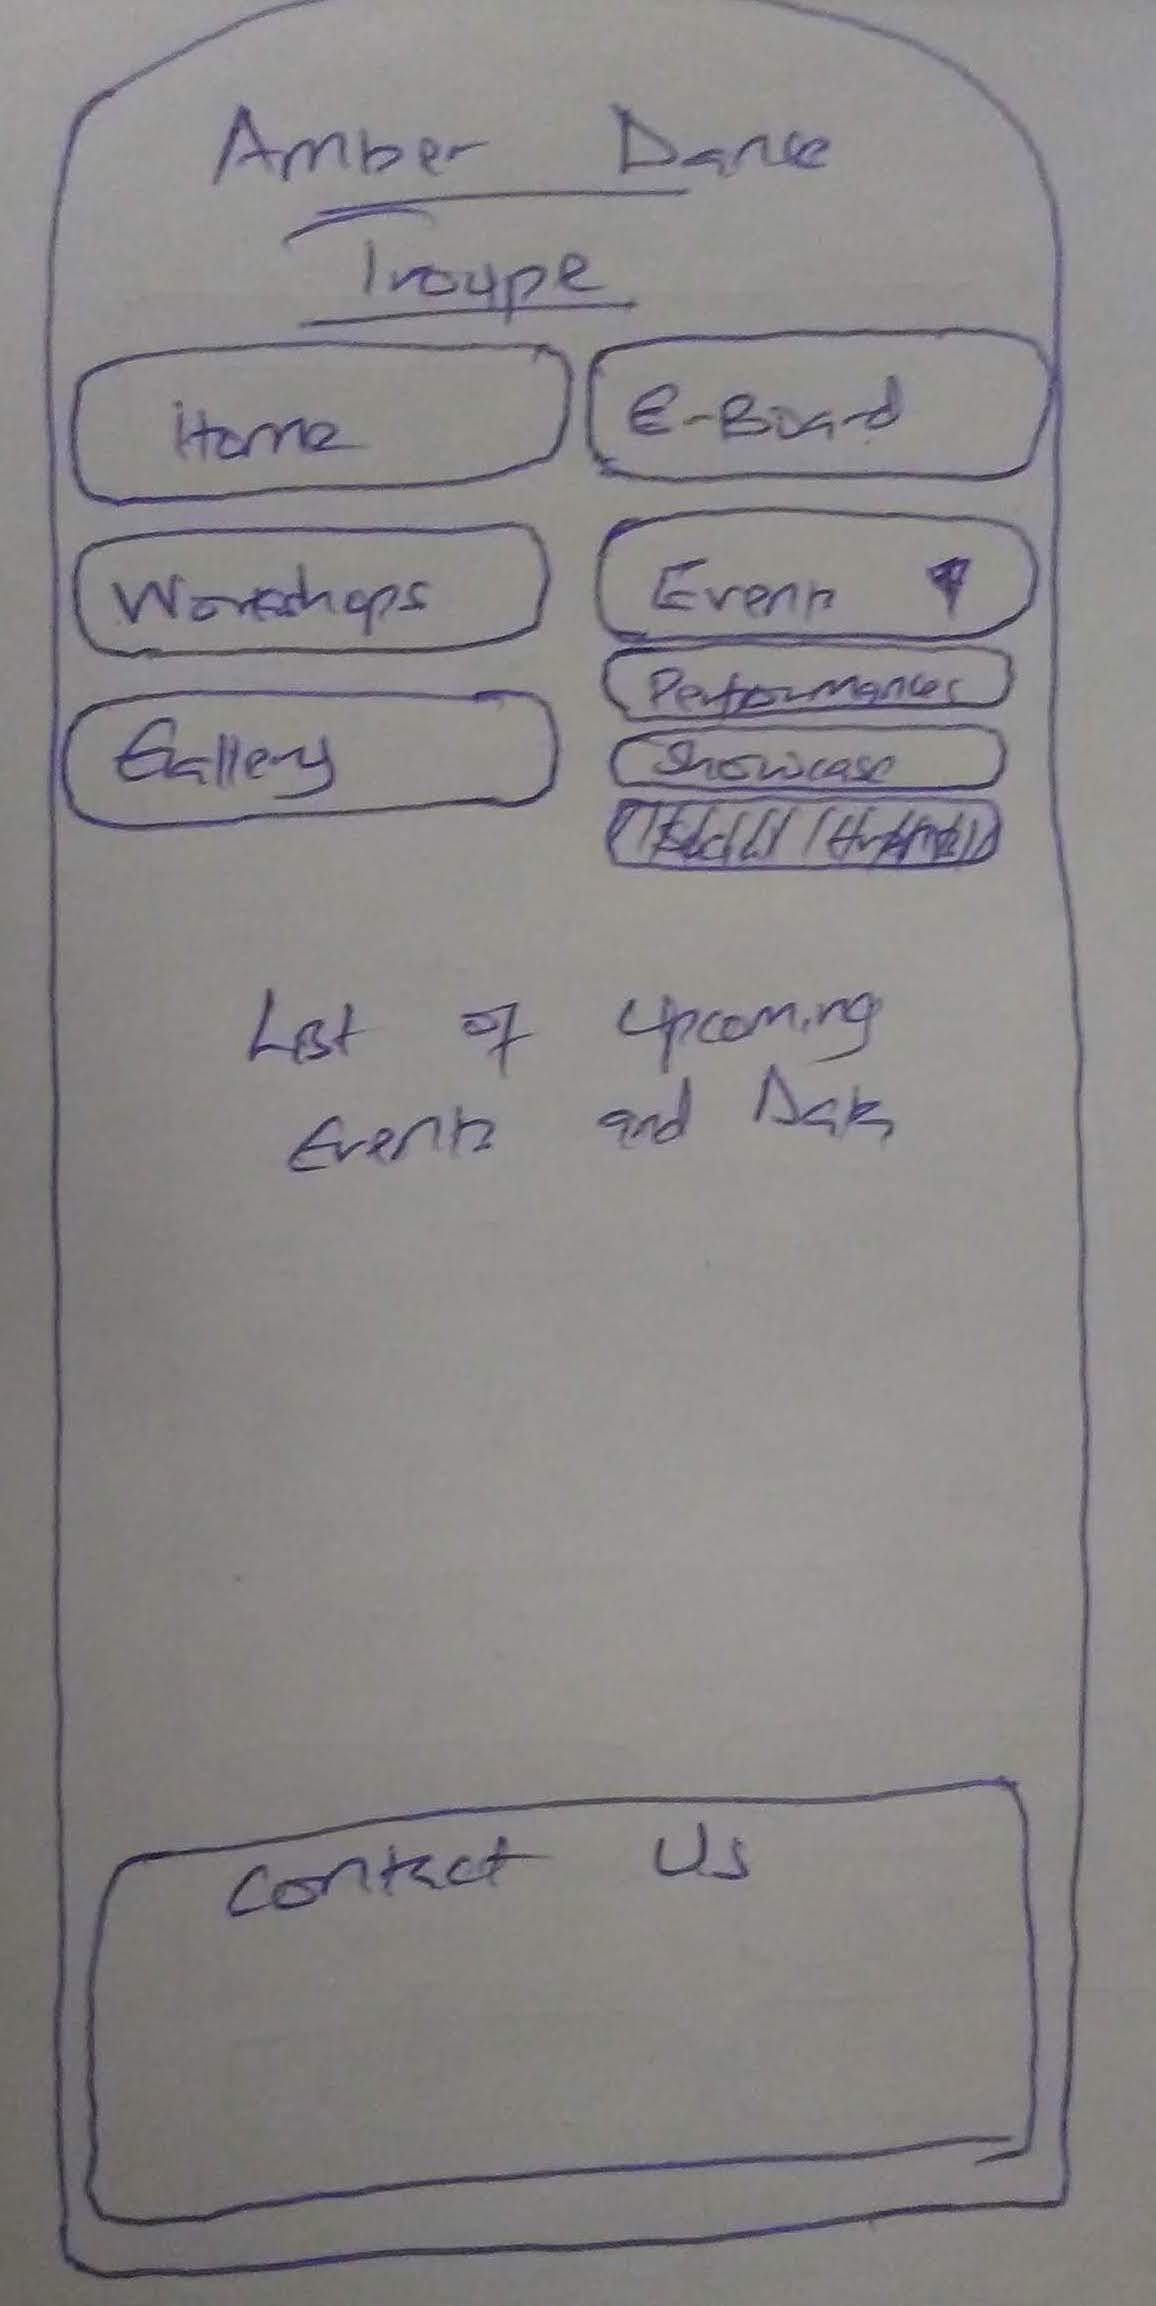 Amber Dance
Troupe
Home
E-Board
Workshops
Events
Performances
Gallery
Showcase
List of Upcoming
Events and Dates
Contact Us